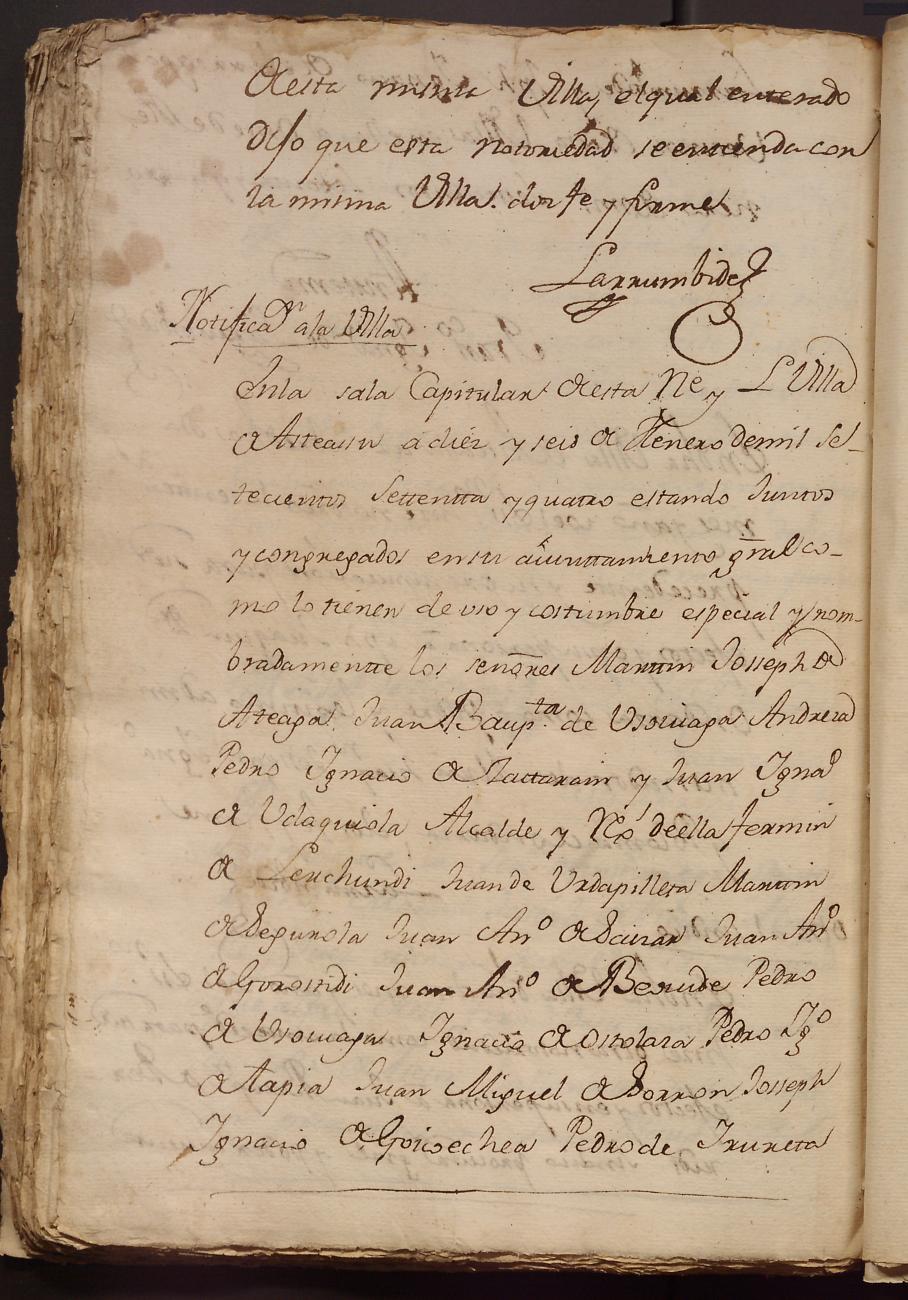 de esta misma Villa, el qual enterado
Dijo que esta notoriedad se entienda con
la misma Villa. doi fe y firme
Larrumbide
Notificaon a la Villa
En la sala Capitular de esta Ne y L Villa
de Asteasu a diez y seis de Henero de mil Set-
tecientos Settentta y quatro estando Juntos
y congregados en su aiunttamiento gral co-
mo lo tienen de uso y costumbre especial y nom-
bradamentte los señores Marttin Josseph de
Ateaga Juan Baupta de Usouiaga Andreza
Pedro Ignacio de Zattarain y Juan Ignao
de Udaquiola Alcalde y Reos de ella fermin
de Lerchundi Juan de Urdapilleta Marttin
de Segurola Juan Ano de Juan Ano
de Gorostidi Juan Ano de Berude Pedro
de Usouiaga Ignacio de Ostolaza Pedro Igo
de tapia Juan Miguel de Sorron Josseph
Ignacio de Goicoechea Pedro de Irureta